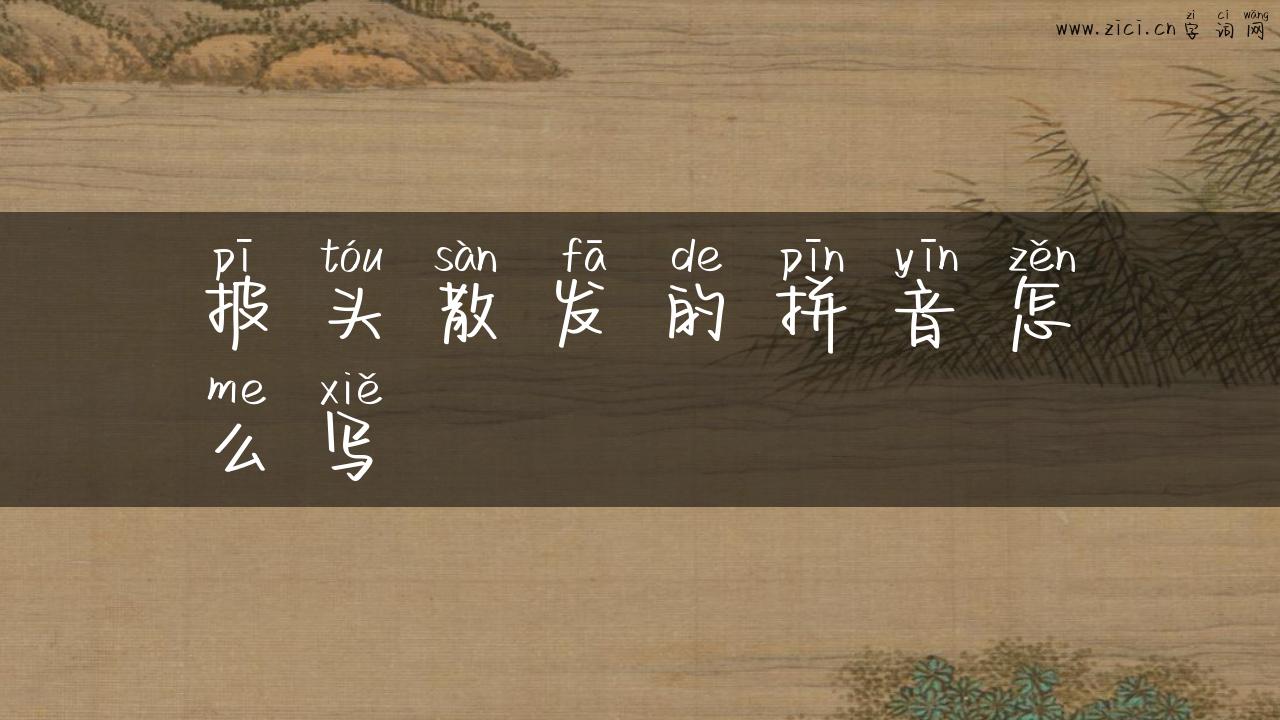 zì cí wǎng
www.zici.cn 字词网
pī tóu sàn fā de pīn yīn zěn
披头散发的拼音怎
me xiě
么写